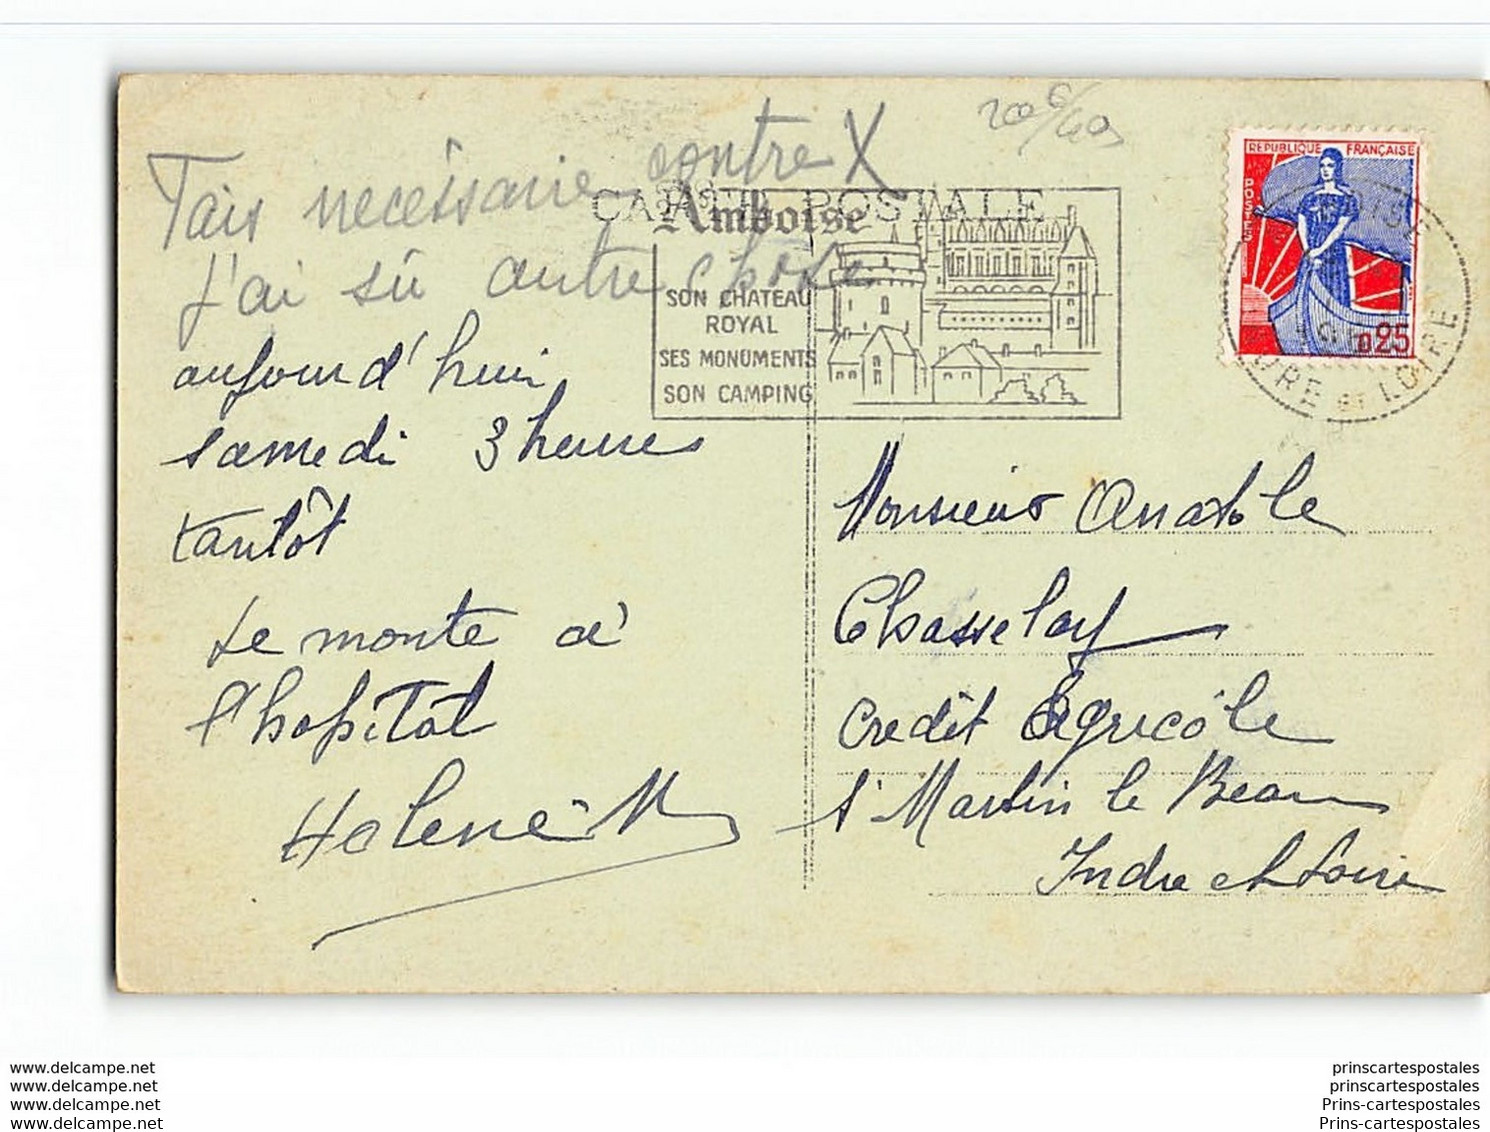 Tais necéssaire contre X
J'ai sû autre chose
aujourd'hui
samedi 3 heures
tantôt
Le monte à
l'hopitâl
Helene M
CARTE POSTALE
Amboise
SON CHATEAU
ROYAL
SES MONUMENTS
SON CAMPING
REPUBLIQUE FRANÇAISE
POSTES
0,25
INDRE ET LOIRE
Monsieur Anatole
Chasselay
Credit Agricôle
St Martin le Beau
Indre et Loire
www.delcampe.net
www.delcampe.net
www.delcampe.net
www.delcampe.net
prinscartespostales
prinscartespostales
Prins-cartespostales
Prins-cartespostales